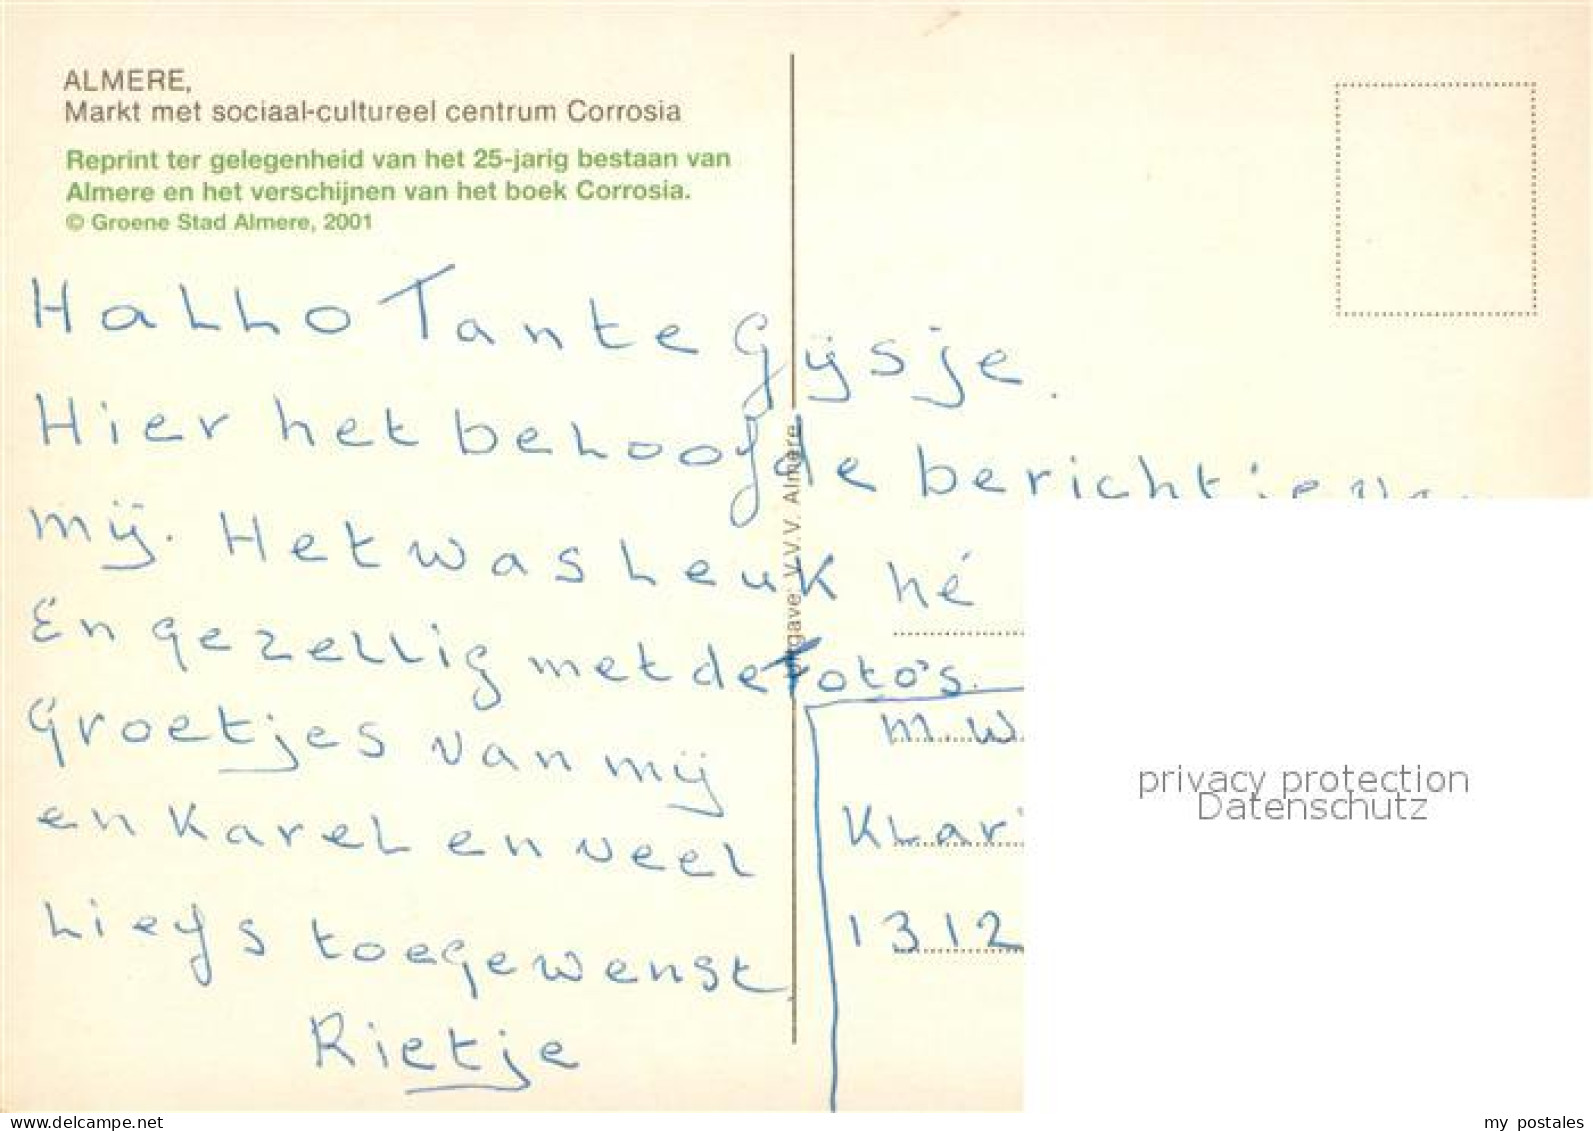 ALMERE,
Markt met sociaal-cultureel centrum Corrosia
Reprint ter gelegenheid van het 25-jarig bestaan van
Almere en het verschijnen van het boek Corrosia.
© Groene Stad Almere, 2001
Hallo Tante Gijsje.
Hier het beloofde berichtje van
mij. Het was leuk hé
En gezellig met de Foto's.
Groetjes van mij
en Karel en veel
Liefs toegewenst.
Rietje
Uitgave: V.V.V. Almere
M.W.
Klar
1312
privacy protection
Datenschutz
www.delcampe.net
my_postales